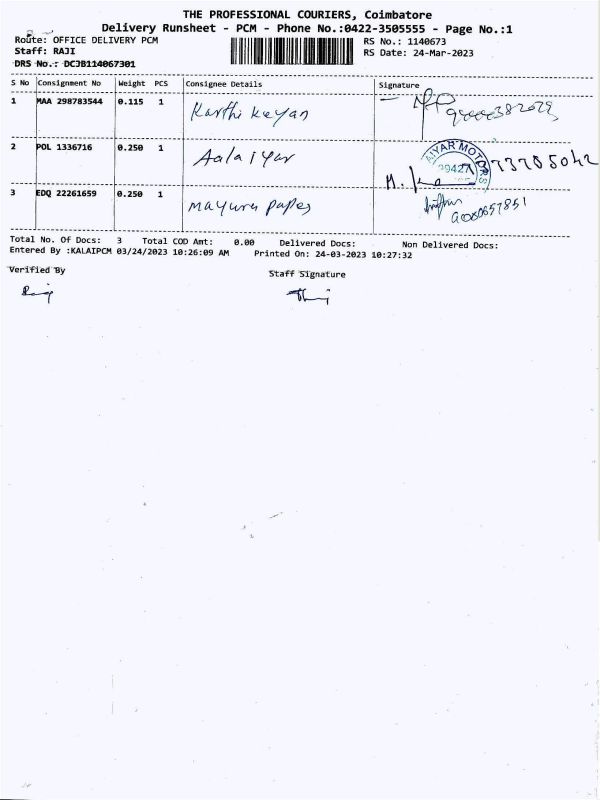 THE PROFESSIONAL COURIERS, Coimbatore
Delivery Runsheet - PCM - Phone No.:0422-3505555 - Page No.:1
Route: OFFICE DELIVERY PCM
RS No.: 1140673
Staff: RAJI
RS Date: 24-Mar-2023
DRS No.: DCJB114067301
S No Consignment No Weight PCS Consignee Details Signature
1 MAA 298783544 0.115 1 Karthi keyan
2 POL 1336716 0.250 1 Aalaiyar
AIYAR MOTORS
3 EDQ 22261659 0.250 1 mayura papes
Total No. Of Docs: 3 Total COD Amt: 0.00 Delivered Docs: Non Delivered Docs:
Entered By :KALAIPCM 03/24/2023 10:26:09 AM Printed On: 24-03-2023 10:27:32
Verified By Staff Signature